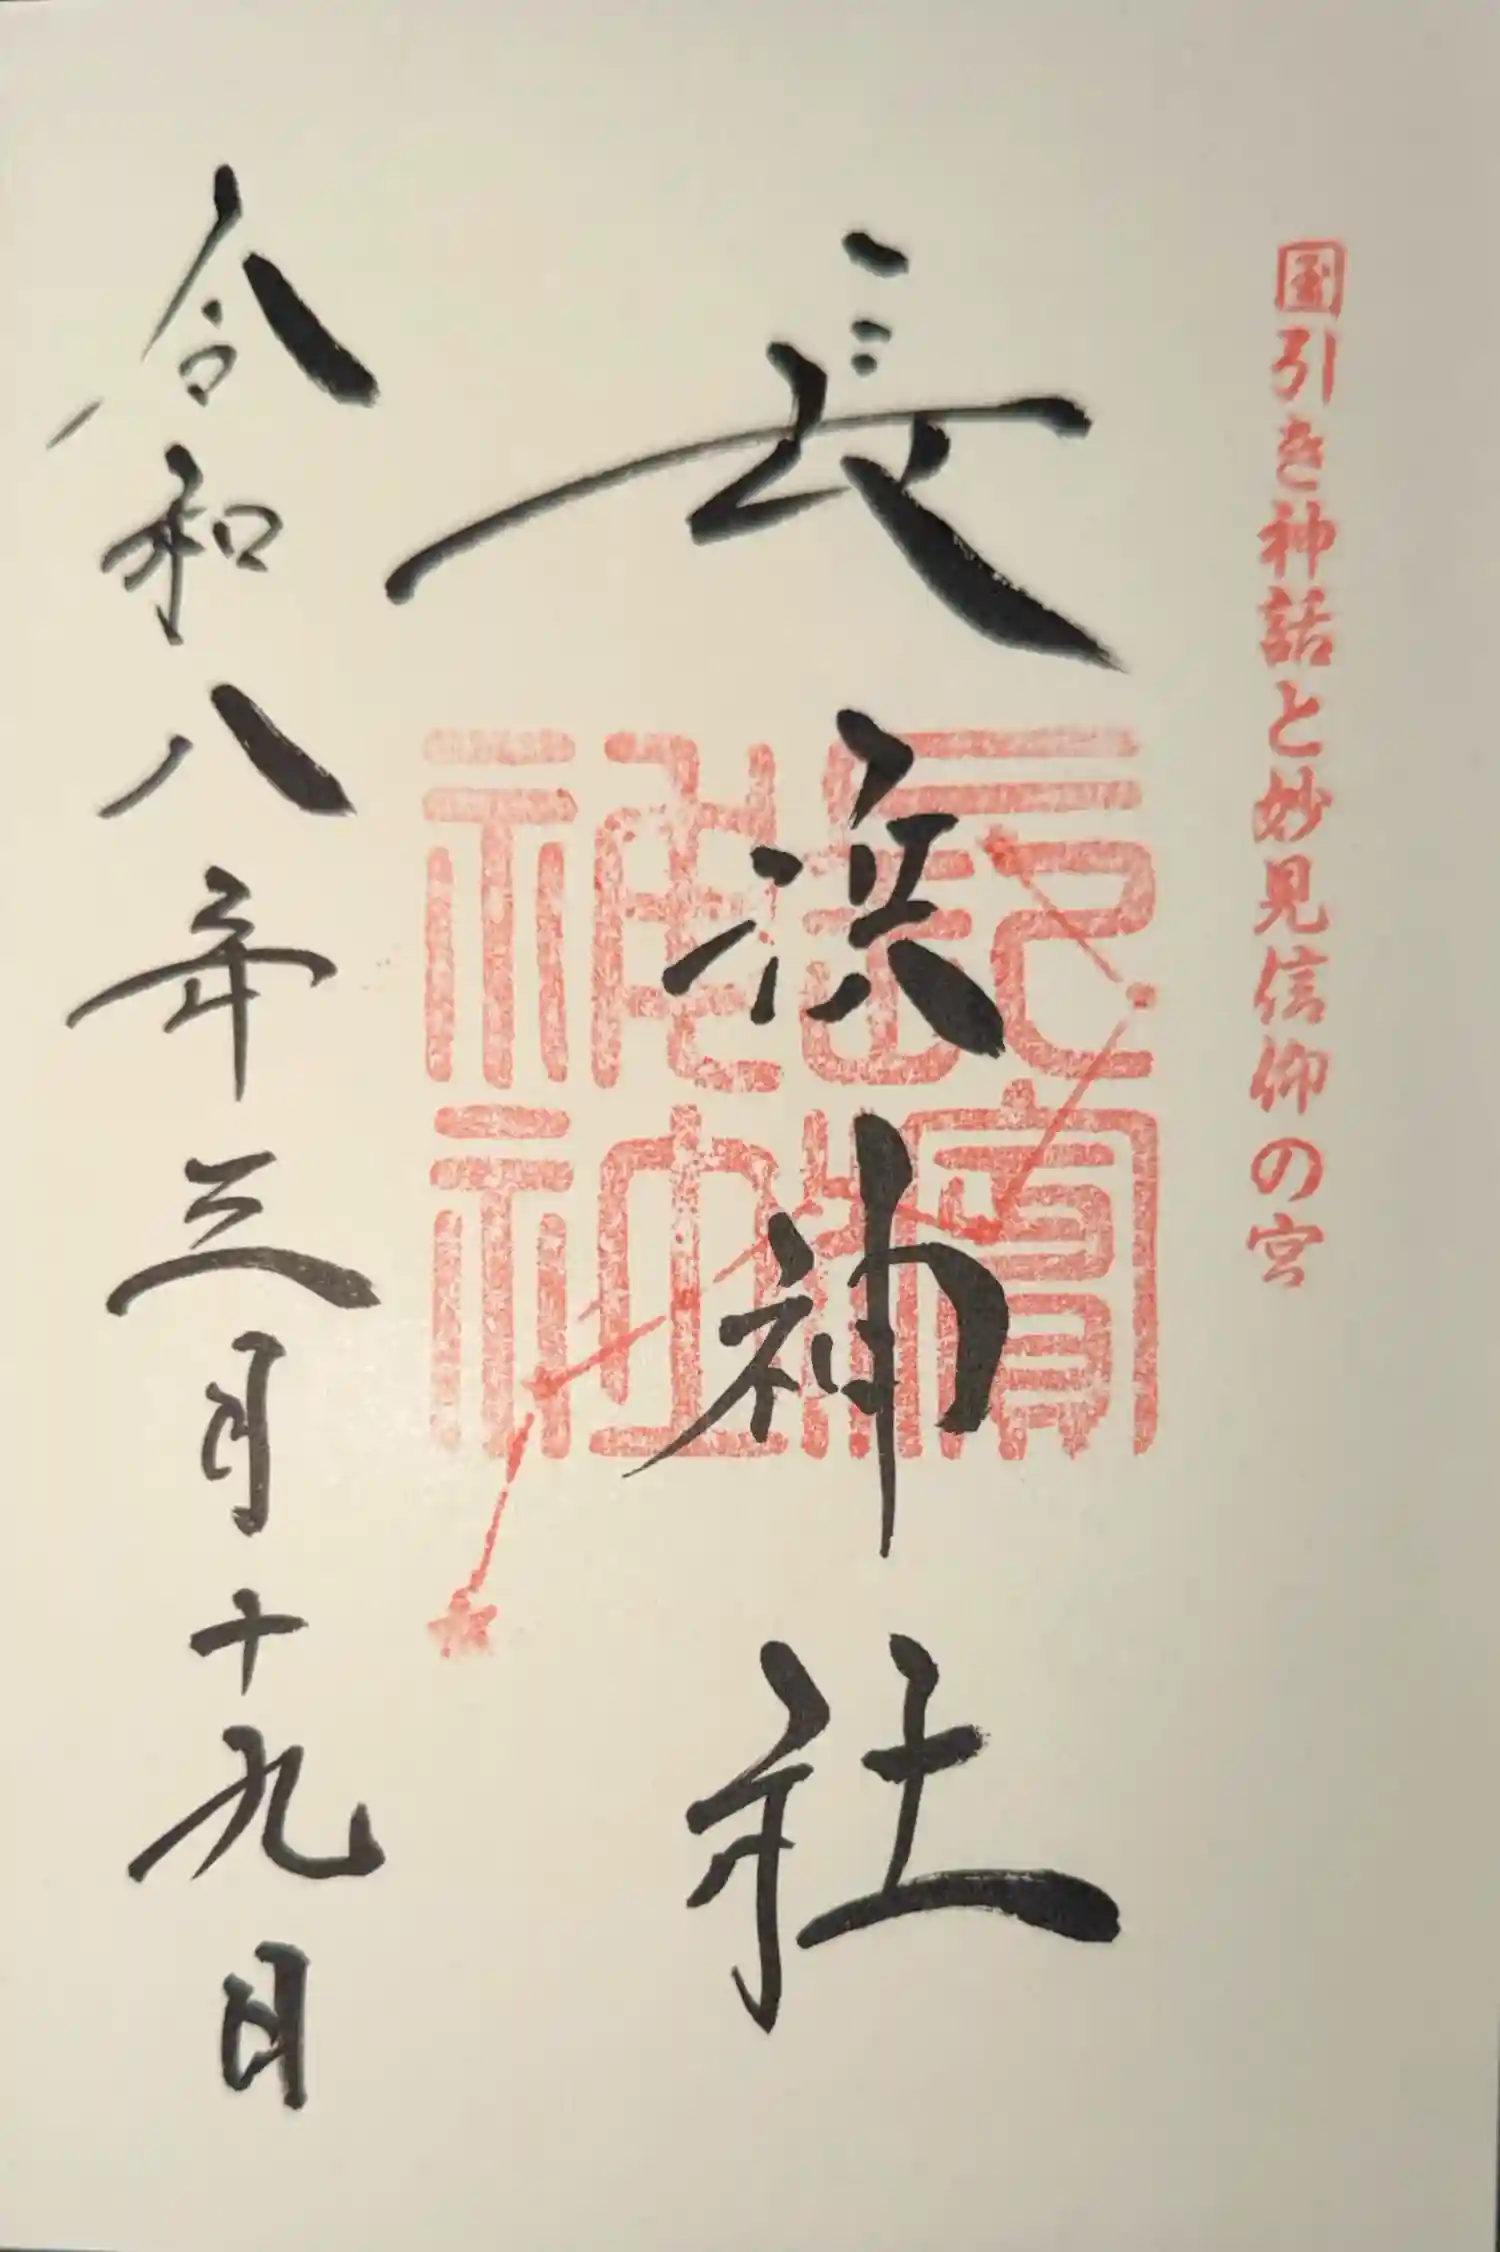 国引き神話と妙見信仰の宮
長浜神社
長濱神社
令和八年三月十九日